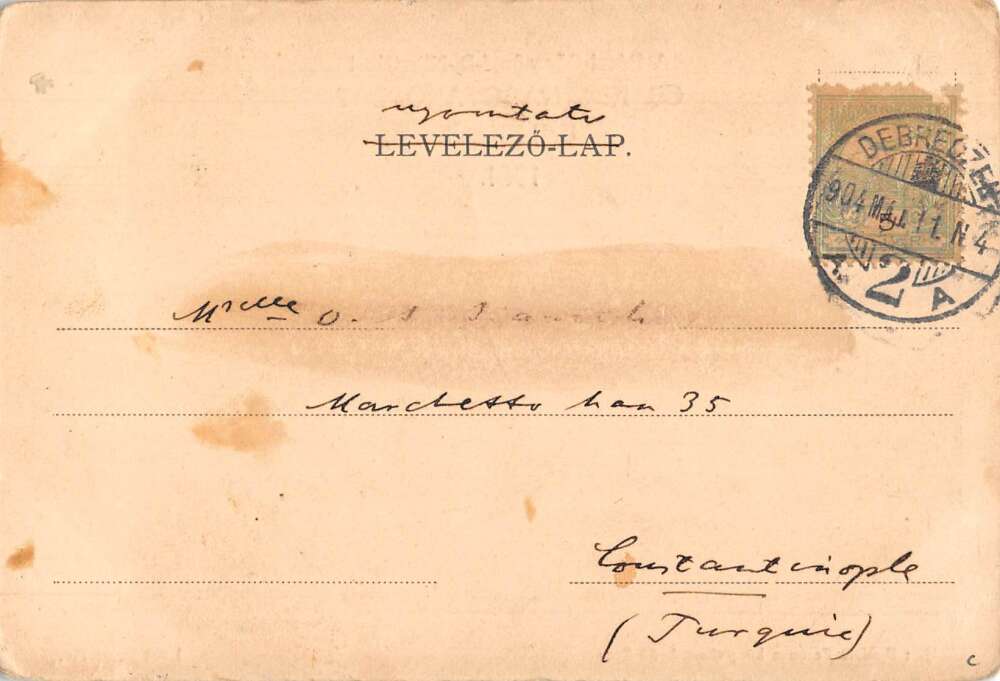 nyomtatv
LEVELEZŐ-LAP.
DEBRECZEN
904 MÁJ. 11. N 4
2
A
Mselle
Marchetto han 35
Constantinople
(Turquie)
c